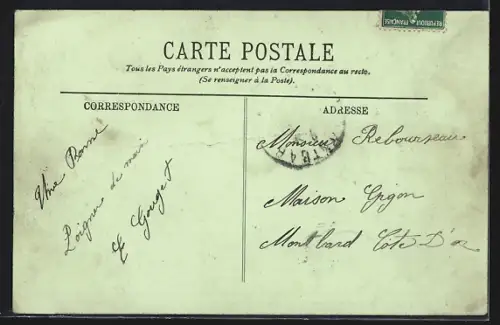 REPUBLIQUE FRANÇAISE
CARTE POSTALE
Tous les Pays étrangers n'acceptent pas la Correspondance au recto.
(Se renseigner à la Poste).
CORRESPONDANCE
Une Bonne
Poignée de main
E Gouget
ADRESSE
Monsieur Rebourseau
Maison Gigon
Montbard Côte D'or